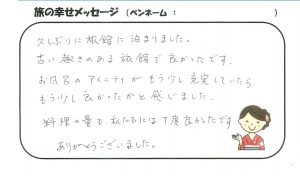 旅の幸せメッセージ（ペンネーム：　　　　　）
久しぶりに旅館に泊まりました。
古い趣きのある旅館で良かったです。
お風呂のアメニティがもう少し充実していたら
もう少し良かったかと感じました。
料理の量も私たちには丁度良かったです
ありがとうございました。